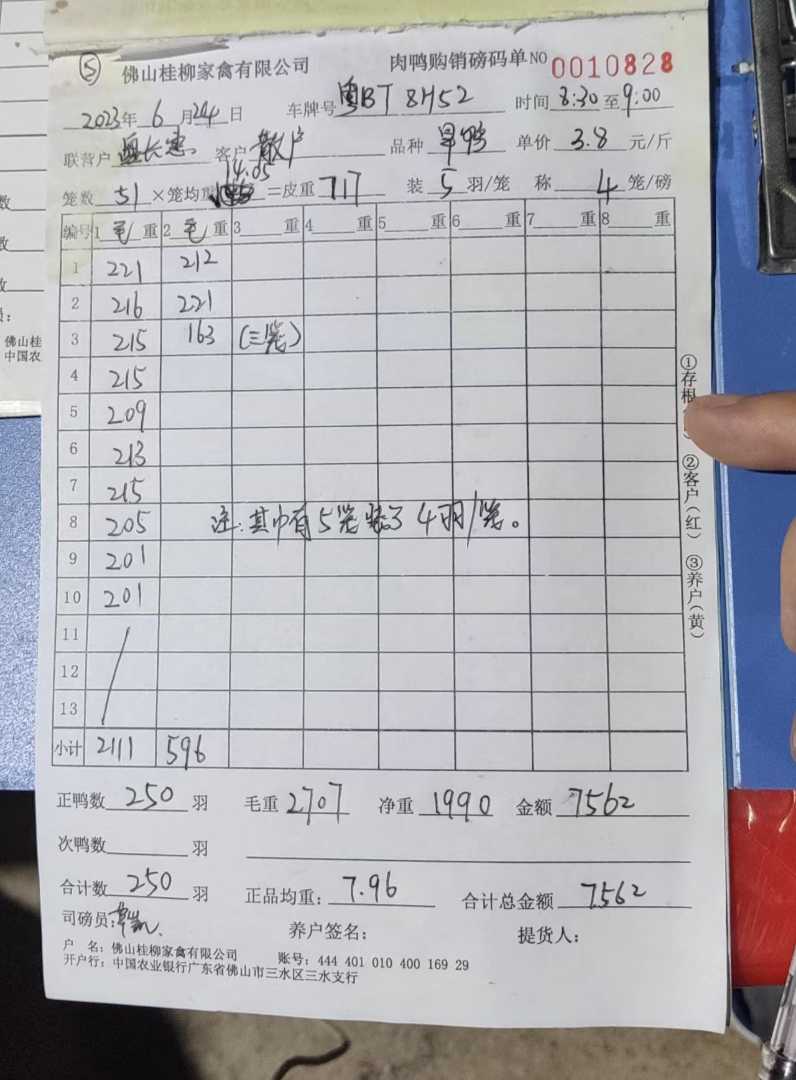 ⑤ 佛山桂柳家禽有限公司 肉鸭购销磅码单 NO 0010828
2023年 6 月 24 日 车牌号 粤BT 8H52 时间 8:30 至 9:00
联营户 客户 散户 品种 旱鸭 单价 3.8 元/斤
14.05
笼数 51 ×笼均重 =皮重 717 装 5 羽/笼 称 4 笼/磅
编号 1 毛 重 2 毛 重 3 重 4 重 5 重 6 重 7 重 8 重
1 221 212
2 216 221
3 215 163 (三笼)
4 215
5 209
6 213
7 215
8 205 注:其中有5笼装了4羽/笼。
9 201
10 201
11
12
13
小计 2111 596
正鸭数 250 羽 毛重 2707 净重 1990 金额 7562
次鸭数 羽
合计数 250 羽 正品均重: 7.96 合计总金额 7562
司磅员: 养户签名: 提货人:
户 名: 佛山桂柳家禽有限公司 账号: 444 401 010 400 169 29
开户行: 中国农业银行广东省佛山市三水区三水支行
①存根
②客户(红)
③养户(黄)
数
数
数
佛山桂
中国农